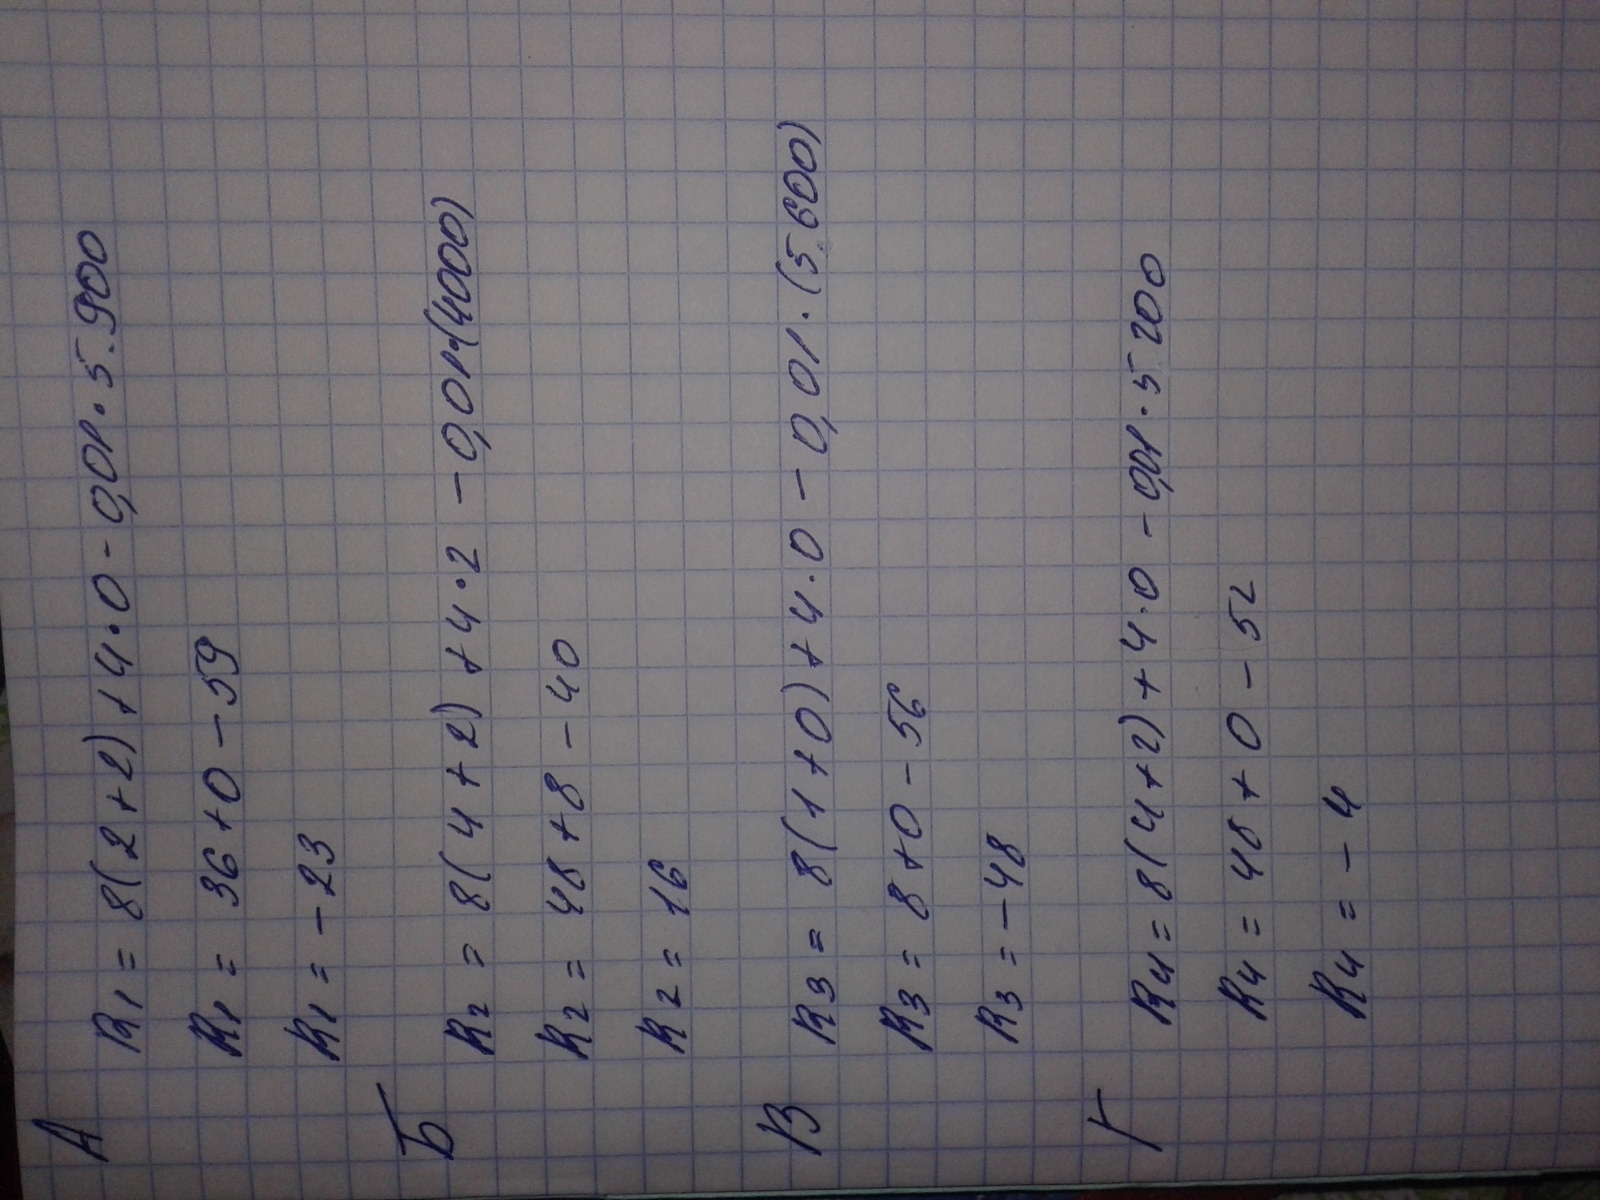 А
R1 = 8(2+2)+4·0-0,01·5.900
R1 = 36+0-59
R1 = -23
Б
R2 = 8(4+2)+4·2-0,01·(4000)
R2 = 48+8-40
R2 = 16
В
R3 = 8(1+0)+4·0-0,01·(5.600)
R3 = 8+0-56
R3 = -48
Г
R4 = 8(4+2)+4·0-0,01·5200
R4 = 48+0-52
R4 = -4